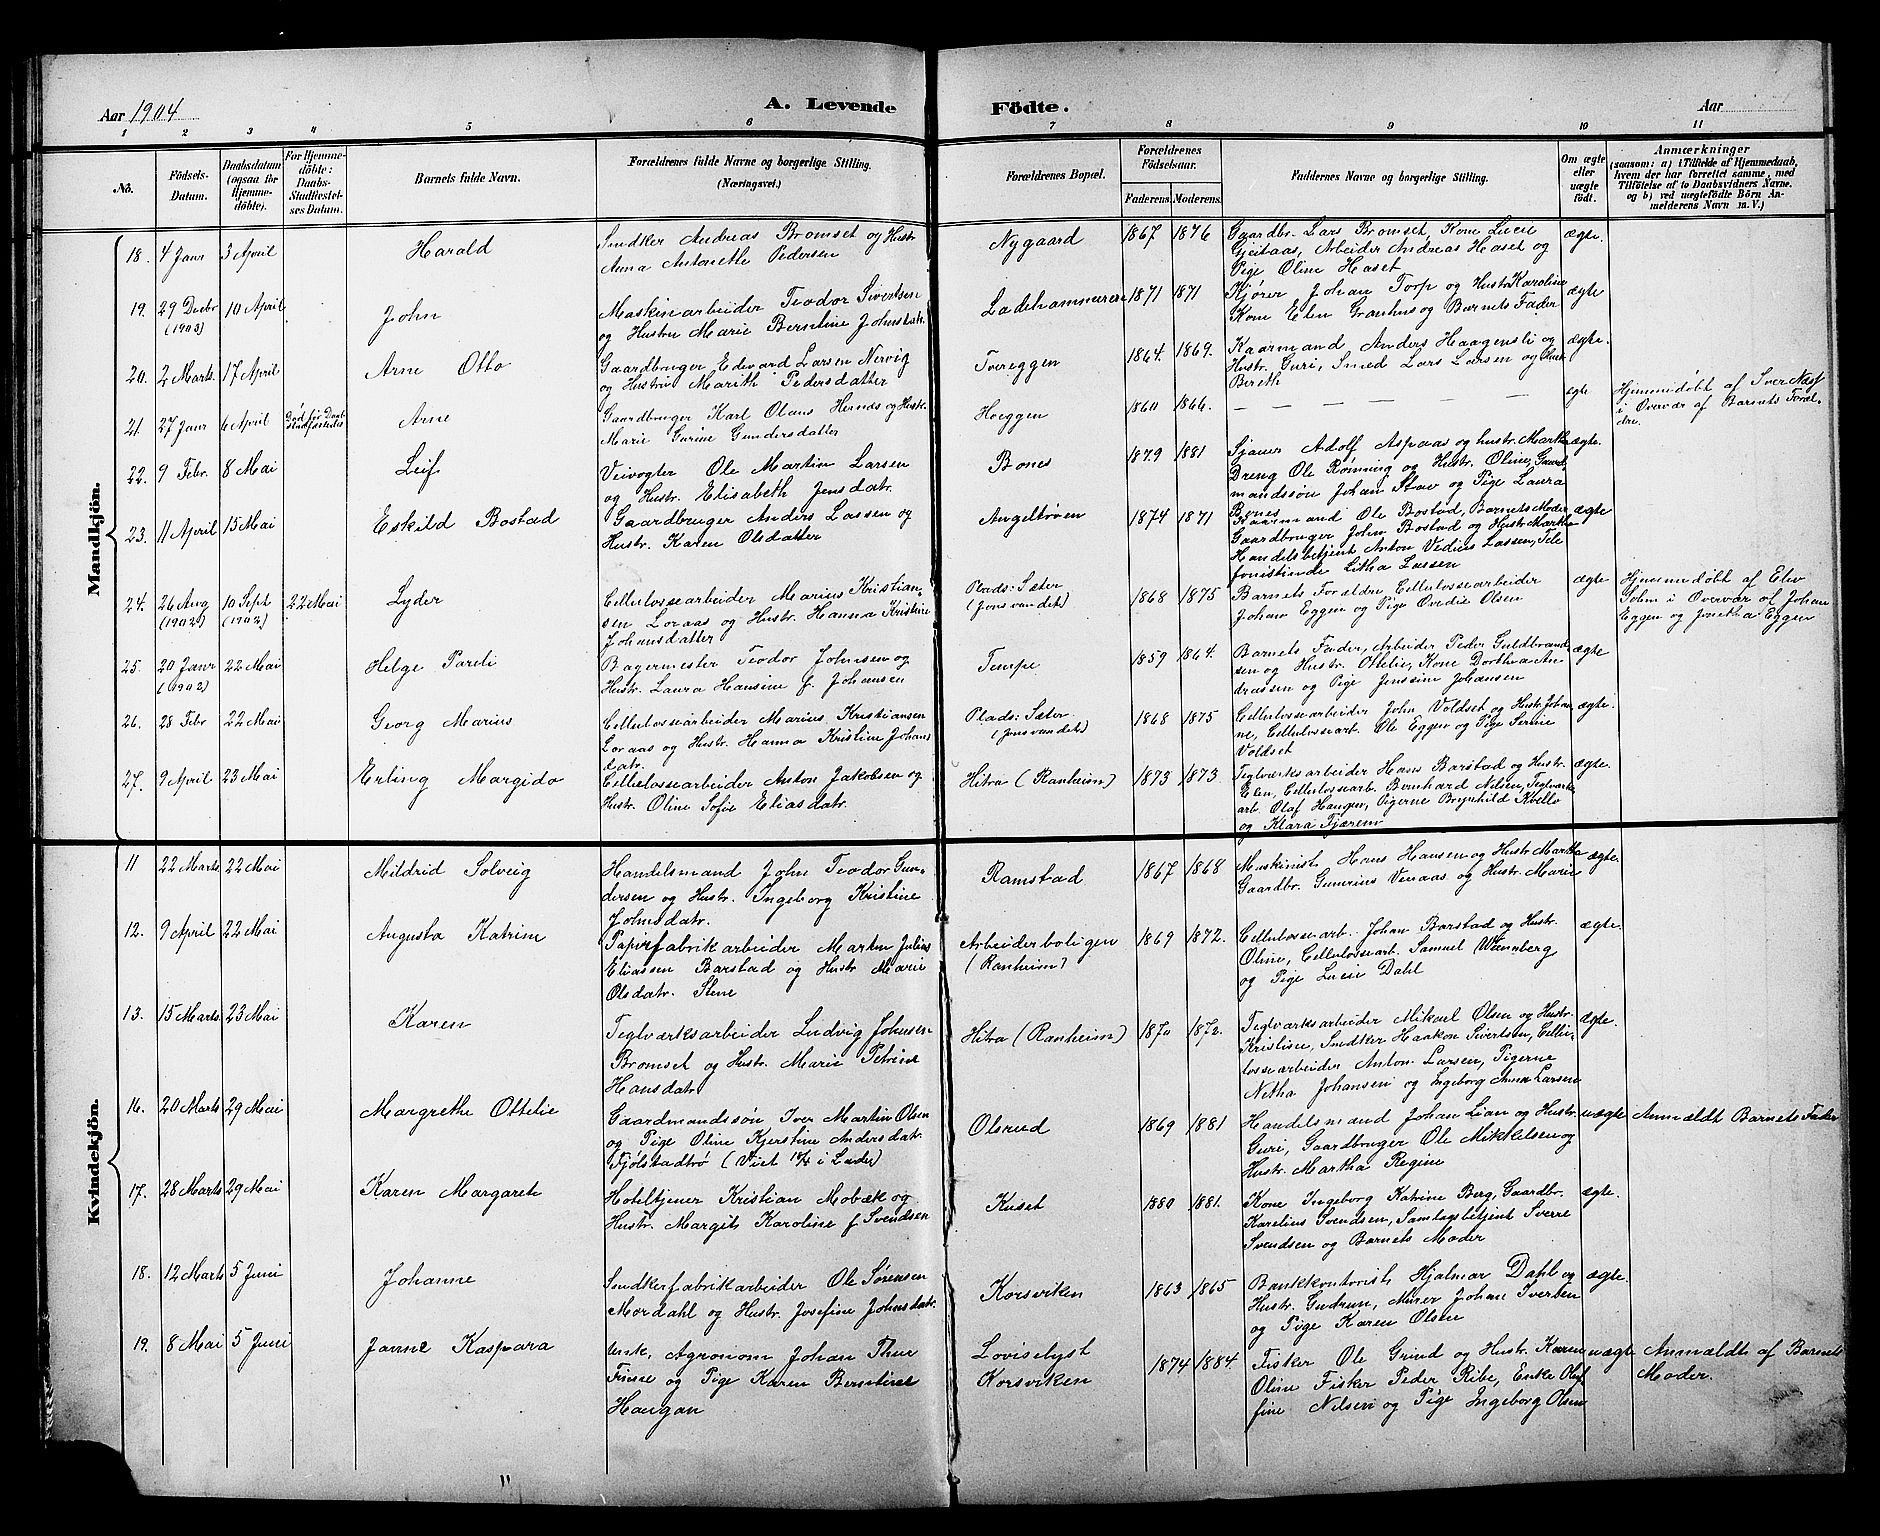 Aar 1904
A. Levende Födte.
Aar
1 2 3 4 5 6 7 8 9 10 11
No.
Födsels-Datum.
Daabsdatum (ogsaa for Hjemme-döbte).
For Hjemme-döbte: Daabs-Stadfæstel-ses Datum.
Barnets fulde Navn.
Forældrenes fulde Navne og borgerlige Stilling.
(Næringsvei.)
Forældrenes Bopæl.
Forældrenes Födselsaar.
Faderens. Moderens.
Faddernes Navne og borgerlige Stilling.
Om ægte eller uægte födt.
Anmærkninger
(saasom: a) i Tilfælde af Hjemmedaab, hvem der har forrettet samme, med Tilföielse af to Daabsvidners Navne, og b) ved uægtefödte Börn An-melderens Navn m. V.)
Mandkjön.
18. 4 Januar 3 April Harald
Snedker Andreas Bromset og Hustr.
Anna Antonette Pedersen
Nygaard 1867 1876
Gaardbr. Lars Bromset, Kone Lucie
Gjeitaas, Arbeider Andreas Haset og
Pige Oline Haset
ægte.
19. 29 Decbr (1903) 10 April John
Maskinarbeider Teodor Sivertsen
og Hustru Marie Berntine Johnsdatr.
Ladehammeren 1871 1871
Kjører Johan Torp og Hustr. Karoline
Kone Elen Granhus og Barnets Fader
ægte
20. 2 Marts. 17 April Arne Otto
Gaardbruger Edevard Larsen Nervig
og Hustru Marith Pedersdatter
Tvereggen 1864. 1869.
Kaarmand Anders Haagensli og
Hustr. Guri, Smed Lars Larsen og Hustr.
Bereth
ægte.
21. 27 Januar 6 April Arne
Gaardbruger Karl Olaus Hernes og Hustr.
Marie Gurine Gundersdatter
Hoeggen 1860 1866.
— — — — — —
ægte
Hjemmedøbt af Iver Næss
i Overvær af Barnets Foræl-
dre.
22. 9 Febr. 8 Mai Leif
Veivogter Ole Martin Larsen
og Hustr. Elisabeth Jensdatr.
Bones 1879 1881
Sjauer Adolf Aspaas og hustr. Martha
Dreng Ole Rønning og Hustr. Oline, Gaard-
mandssøn Johan Stav og Pige Laura
Bones
ægte.
23. 11 April 15 Mai Eskild Bostad
Gaardbruger Anders Lassen og
Hustr. Karen Olsdatter
Angeltrøen 1874 1871
Kaarmand Ole Bostad, Barnets Moder
Gaardbruger Johan Bostad og Hustr. Martha
Handelsbetjent Anton Vedius Lassen, Tele
fonistinde Litha Lassen
ægte
24. 26 Aug (1902) 10 Sept (1902) 22 Mai Lyder
Cellulossearbeider Marius Kristian-
sen Loraas og Hustr. Hanna Kristine
Johansdatter
Plads: Sæter
(Jonsvandet) 1868 1875
Barnets Foreldre, Cellulossearbeider
Johan Eggen og Pige Ovedie Olsen
ægte
Hjemmedøbt af Elev
Solem i Overvær af Johan
Eggen og Jonetta Eggen
25. 20 Januar (1902) 22 Mai Helge Pareli
Bagermester Teodor Johnsen og
Hustr. Laura Hansine f. Johansen
Tempe 1859 1864.
Barnets Fader, Arbeider Peder Guldbrand
sen og Hustr. Ottelie, Kone Dorthea An
drassen og Pige Jenssine Johansen
ægte
26. 28 Febr 22 Mai Georg Marius
Cellulossearbeider Marius Kristiansen
Loraas og Hustr. Hanna Kristine Johans
datr.
Plads: Sæter
(Jonsvandet) 1868 1875
Cellulossearbeider John Voldset og Hustr. Johan
ne, Cellulossearb. Ole Eggen og Pige Serine
Voldset
ægte.
27. 9 April 23 Mai Erling Margido
Cellulossearbeider Anton Jakobsen og
Hustr. Oline Sofie Eliasdatr.
Hitra (Ranheim) 1873 1873.
Teglværksarbeider Hans Barstad og Hustr.
Elen, Cellulossearb. Bernhard Nilsen, Teglværks
arb. Olaf Haugen, Pigerne Brynhild Kvello
og Klara Fjærem
ægte.
Kvindekjön.
11 22 Marts. 22 Mai Mildrid Solveig
Handelsmand John Teodor Gun-
dersen og Hustr. Ingeborg Kristine
Johnsdatr.
Ramstad 1867 1868
Maskinist Hans Hansen og Hustr. Martha
Gaardbr. Gunerius Venaas og Hustr. Marie
ægte.
12. 9 April 22 Mai Augusta Katrine
Papirfabrikarbeider Martin Julius
Eliassen Barstad og Hustr. Marie
Olsdatr. Stene
Arbeiderboligen
(Ranheim) 1869 1872.
Cellulossearb. Johan Barstad og Hustr.
Oline, Cellulossearb. Samuel Wennberg
og Pige Lucie Dahl
ægte.
13. 15 Marts. 23 Mai Karen
Teglværksarbeider Ludvig Johnsen
Bromset og Hustr. Marie Petrine
Hansdatr.
Hitra (Ranheim) 1870 1872.
Teglværksarbeider Mikael Olsen og Hustr.
Kristine, Snedker Haakon Sivertsen, Cellu-
lossearbeider Anton Larsen, Pigerne
Netha Johansen og Ingeborg Anna Larsen
ægte.
16. 20 Marts 29 Mai Margrethe Ottelie
Gaardmandssøn Iver Martin Olsen
og Pige Oline Kjerstine Andersdatr.
Fjølstadtrø (Viet 14/4 i Lade)
Olsrud 1869 1881
Handelsmand Johan Lian og Hustr.
Guri, Gaardbruger Ole Mikkelsen og
Hustr. Martha Regine
uægte
Anmældt Barnets Fader
17. 28 Marts 29 Mai Karen Margarete
Hoteltjener Kristian Mobæk og
Hustr. Margit Karoline f. Svendsen
Kuset 1880 1881.
Kone Ingeborg Katrine Berg, Gaardbr.
Karelius Svendsen, Samlagsbetjent Sverre
Svendsen og Barnets Moder
ægte.
18. 12 Marts 5 Juni Johanne
Snedkerfabrikarbeider Ole Sørensen
Mordahl og Hustr. Josefine Johnsdatr.
Korsviken 1863 1865
Bankkontorist Hjalmar Dahl og
Hustr. Gudrun, Murer Johan Iversen
og Pige Karen Olsen
ægte.
19. 8 Mai 5 Juni Janne Kaspara
Enk. Agronom Johan Thur
Finne og Pige Karen Berntine
Haugan
Loviselyst
Korsviken 1874 1884
Fisker Ole Grind og Hustr. Karen
Oline Fisker Peder Ribe, Enke Olu
fine Nilsen og Pige Ingeborg Olsen
uægte
Anmældt af Barnets
Moder.
11